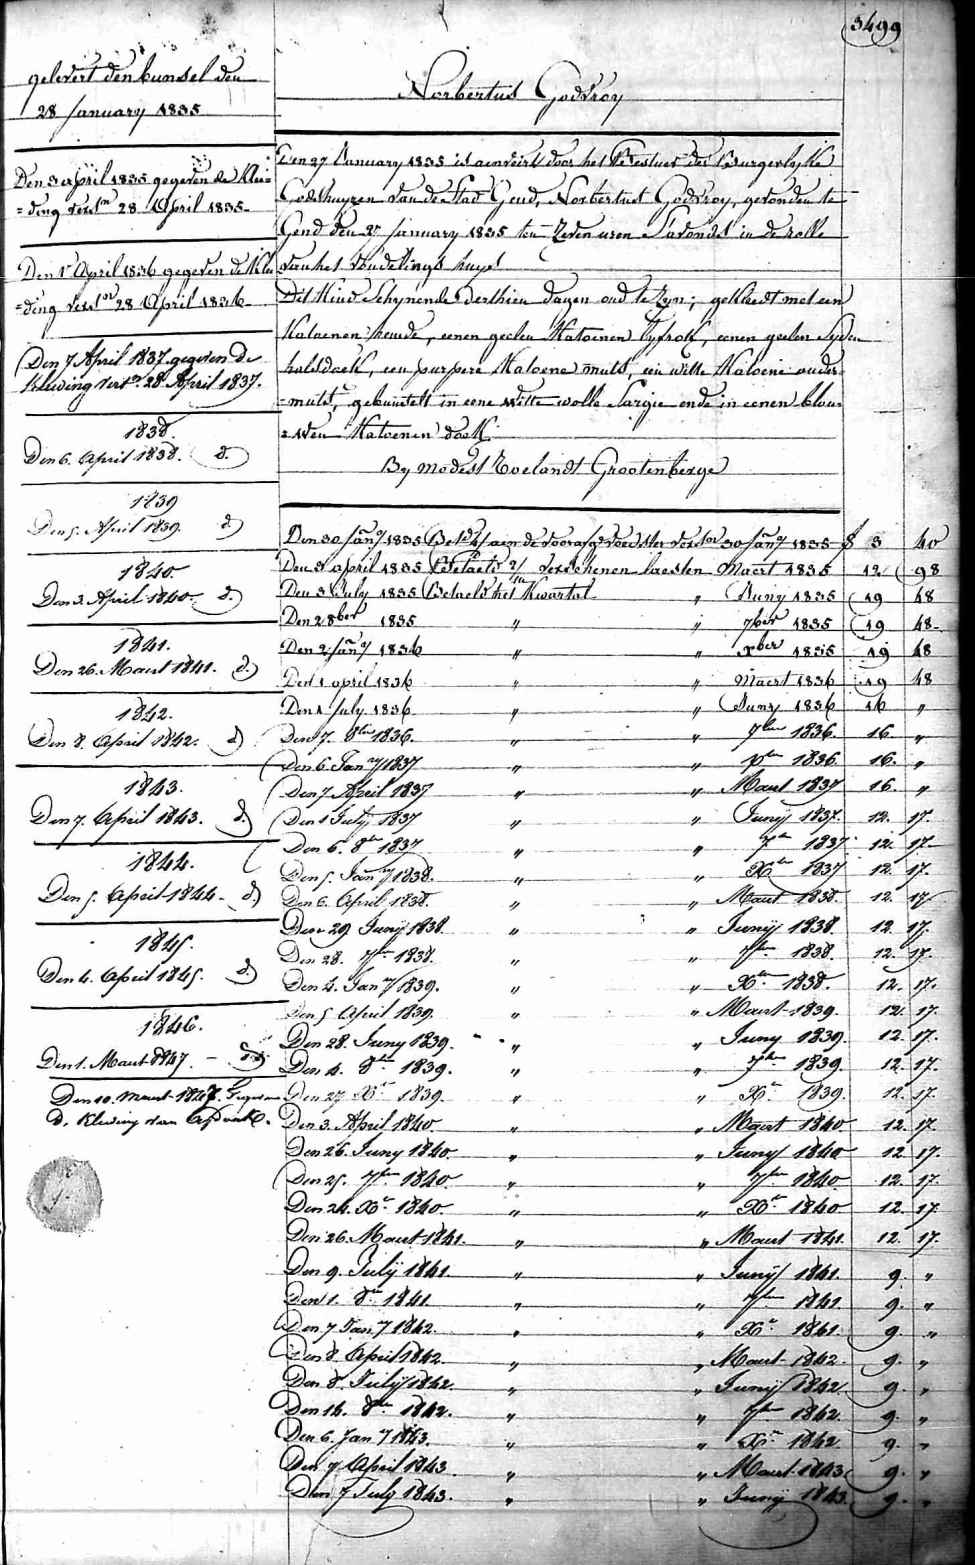 3499
gelevert den bunsel den
28 January 1835
Den 3 april 1835 gegeven de Klee=
=ding verst.n 28 April 1835.
Den 1r April 1836 gegeven de Klee
=ding verst.n 28 April 1836
Den 7 April 1837 gegeven de
Kleeding verst.n 28 April 1837.
1838.
Den 6. April 1838. d.
1839
Den 5. April 1839. d
1840.
Den 3. April 1840. d.
1841.
Den 26. Maert 1841. d.
1842.
Den 8. April 1842. d
1843.
Den 7. April 1843. d.
1844.
Den 5. April 1844. d
1845.
Den 4. April 1845. d.
1846.
Den 1. Maert 1847. –
Den 10. maert 1847. Gegeven
d. Kleeding van
Norbertus Godvroy
Den 27 January 1835 is aenveird door het Bestuer der Burgerlyke
Godshuyzen van de Stad Gend, Norbertus Godvroy, gevonden te
Gend den 27 January 1835 ten zeven uren s'avonds in de rolle
van het vondelings huys
Dit Kind schynende derthien dagen oud te zyn; gekleedt met een
Katoenen hemde, eenen geelen Katoenen lyfrok, eenen geelen syden
halsdoek, een purpere Katoene muts, een witte Katoene onder
=muts, gebunselt in eene witte wolle sargie ende in eenen blau
=wen Katoenen doek.
By Modest Roelandt Grootenberge
Den 30 Jan.y 1835 Bet.d aen de voorafg. voedster verst. 30 Jan.y 1835 f 3 40
Den 3 april 1835 Betaeld 2/m verschenen laesten Maert 1835 12 98
Den 3 July 1835 Betaeld het Kwartal " Juny 1835 19 48
Den 2 8ber 1835 " " 7ber 1835 19 48
Den 2 Jan.y 1836 " " Xber 1835 19 48
Den 1 april 1836 " " Maert 1836 19 48
Den 1 July 1836 " " Juny 1836 16 "
Den 7. 8ber 1836. " " 7ber 1836. 16. "
Den 6. Jan.y 1837 " " Xber 1836 16. "
Den 7 April 1837 " " Maert 1837 16. "
Den 1 July 1837 " " Junij 1837. 12. 17.
Den 6. 8ber 1837 " " 7ber 1837 12. 17.
Den 5. Jan.y 1838. " " Xber 1837 12. 17.
Den 6. April 1838. " " Maert 1838. 12. 17
Den 29 Junij 1838. " " Junij 1838. 12. 17.
Den 28. 7ber 1838. " " 7ber 1838. 12. 17.
Den 4. Jan.y 1839. " " Xber 1838. 12. 17.
Den 5 April 1839. " " Maert 1839. 12. 17.
Den 28. Juny 1839. " " Juny 1839. 12. 17.
Den 4. 8ber 1839. " " 7ber 1839. 12. 17.
Den 27 Xber 1839 " " Xber 1839. 12. 17.
Den 3. April 1840 " " Maert 1840 12. 17.
Den 26. Juny 1840 " " Juny 1840 12 17.
Den 25. 7ber 1840. " " 7ber 1840. 12. 17.
Den 24. Xber 1840. " " Xber 1840 12. 17.
Den 26. Maert 1841. " " Maert 1841. 12. 17.
Den 9. Julij 1841. " " Junij 1841. 9. "
Den 1. 8ber 1841. " " 7ber 1841 9. "
Den 7 Jan.y 1842. " " Xber 1841. 9. "
Den 8. April 1842. " " Maert 1842. 9. "
Den 8. July 1842. " " Junij 1842. 9. "
Den 14. 8ber 1842. " " 7ber 1842. 9. "
Den 6. Jan.y 1843. " " Xber 1842 9. "
Den 7 April 1843 " " Maert 1843 9. "
Den 7 July 1843. " " Junij 1843. 9. "